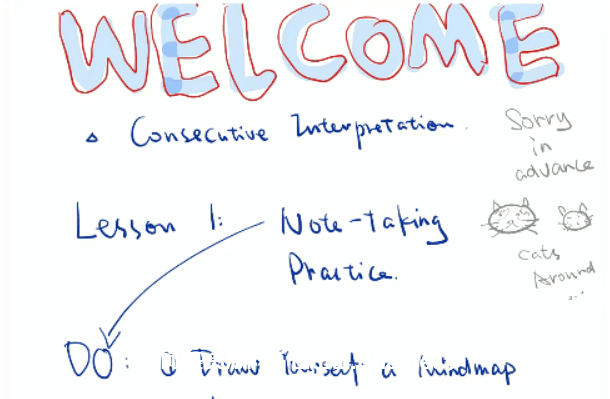 WELCOME
Consecutive Interpretation.
Sorry
in
advance
Lesson 1: Note-Taking
Practice.
cats
Around
...
DO: ① Draw Yourself a Mindmap